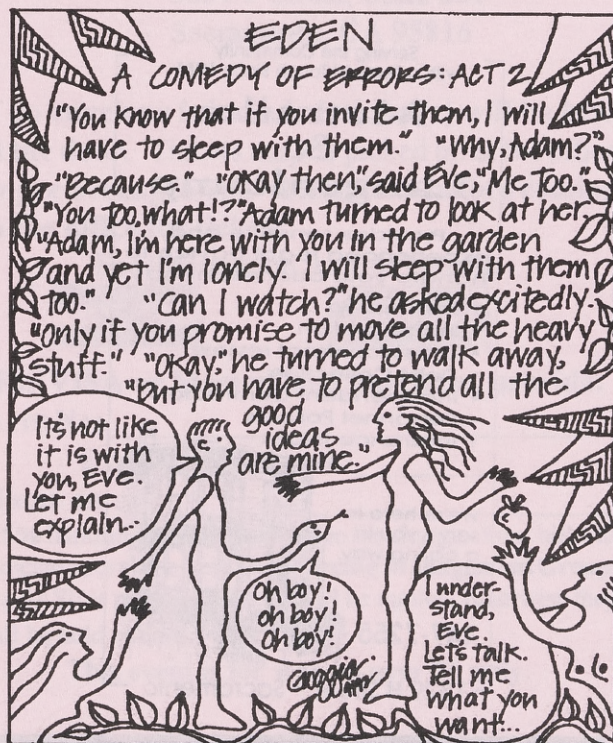 EDEN
A COMEDY OF ERRORS: ACT 2
"You know that if you invite them, I will
have to sleep with them." "Why, Adam?"
"Because." "Okay then," said Eve, "Me too."
"You too, what!?" Adam turned to look at her.
"Adam, I'm here with you in the garden
and yet I'm lonely. I will sleep with them
too." "Can I watch?" he asked excitedly.
"Only if you promise to move all the heavy
stuff." "Okay," he turned to walk away,
"but you have to pretend all the
good
ideas
are mine."
It's not like
it is with
you, Eve.
Let me
explain...
Oh boy!
Oh boy!
Oh boy!
I under-
stand,
Eve.
Let's talk.
Tell me
what you
want...